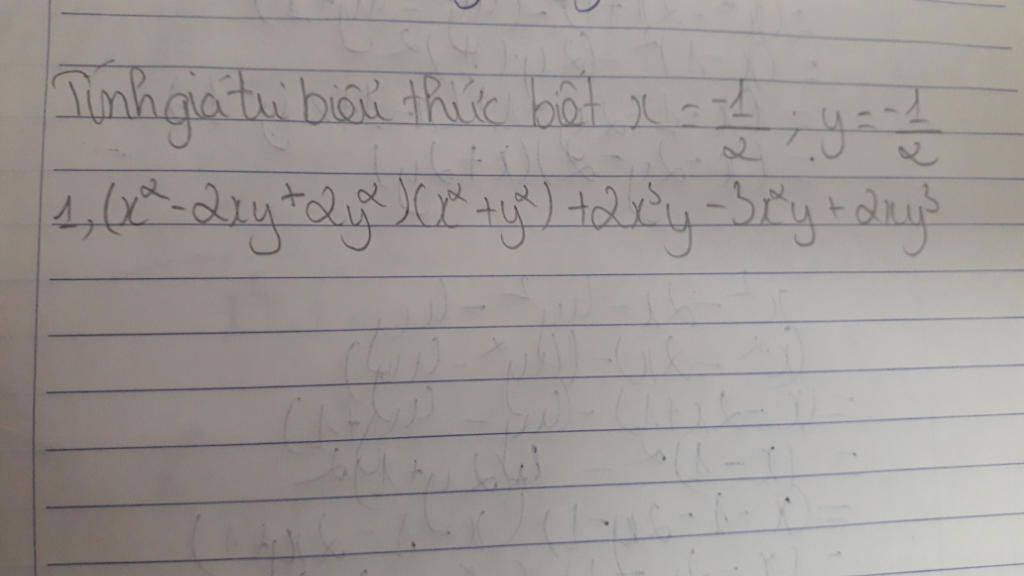 Tính giá trị biểu thức biết x = -1/2 ; y = -1/2
1, (x² - 2xy + 2y²)(x² + y²) + 2x³y - 3x²y + 2xy³